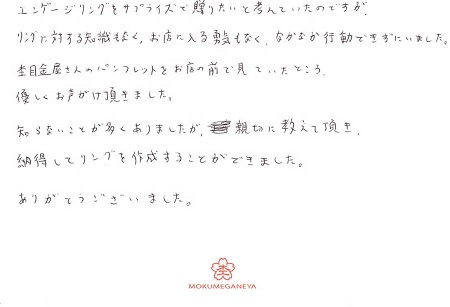 エンゲージリングをサプライズで贈りたいと考えていたのですが、
リングに対する知識もなく、お店に入る勇気もなく、なかなか行動できずにいました。
杢目金屋さんのパンフレットをお店の前で見ていたところ、
優しくお声がけ頂きました。
知らないことが多くありましたが、親切に教えて頂き、
納得してリングを作成することができました。
ありがとうございました。
MOKUMEGANEYA